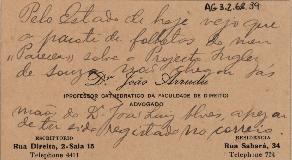 AG 3.2.62.39
Pelo Estado de hoje vejo que
o pacote de folhetos do meu
"Parecer" sobre o Projecto Inglez
de Souza não chegou ás
Dr. João Arruda
(PROFESSOR CATHEDRATICO DA FACULDADE DE DIREITO)
ADVOGADO
mãos do Dr. João Luiz Alves, apezar
de ter sido registado no correio.
ESCRIPTORIO
Rua Direita, 2-Sala 15
Telephone 4411
RESIDENCIA
Rua Sabará, 34
Telephone 774